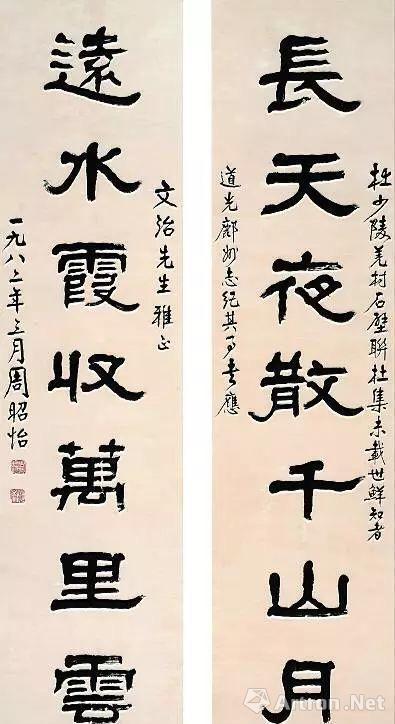 長天夜散千山月
杜少陵羌村石壁聯杜集未載世鮮知者
道光鄜州志紀其事書應
遠水霞收萬里雲
文治先生雅正
一九八二年三月周昭怡
Artron.Net